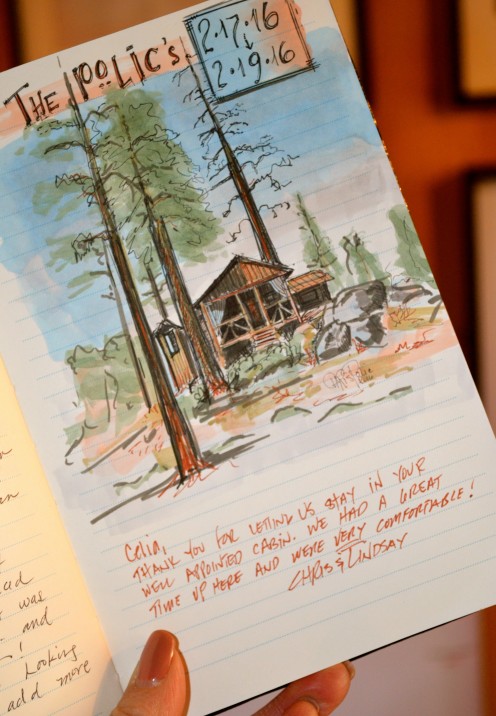 THE POLIC'S
2·17·16
2·19·16
Celia,
THANK YOU FOR LETTING US STAY IN YOUR
WELL APPOINTED CABIN. WE HAD A GREAT
TIME UP HERE AND WERE VERY COMFORTABLE!
CHRIS & LINDSAY
was
and
Looking
add more